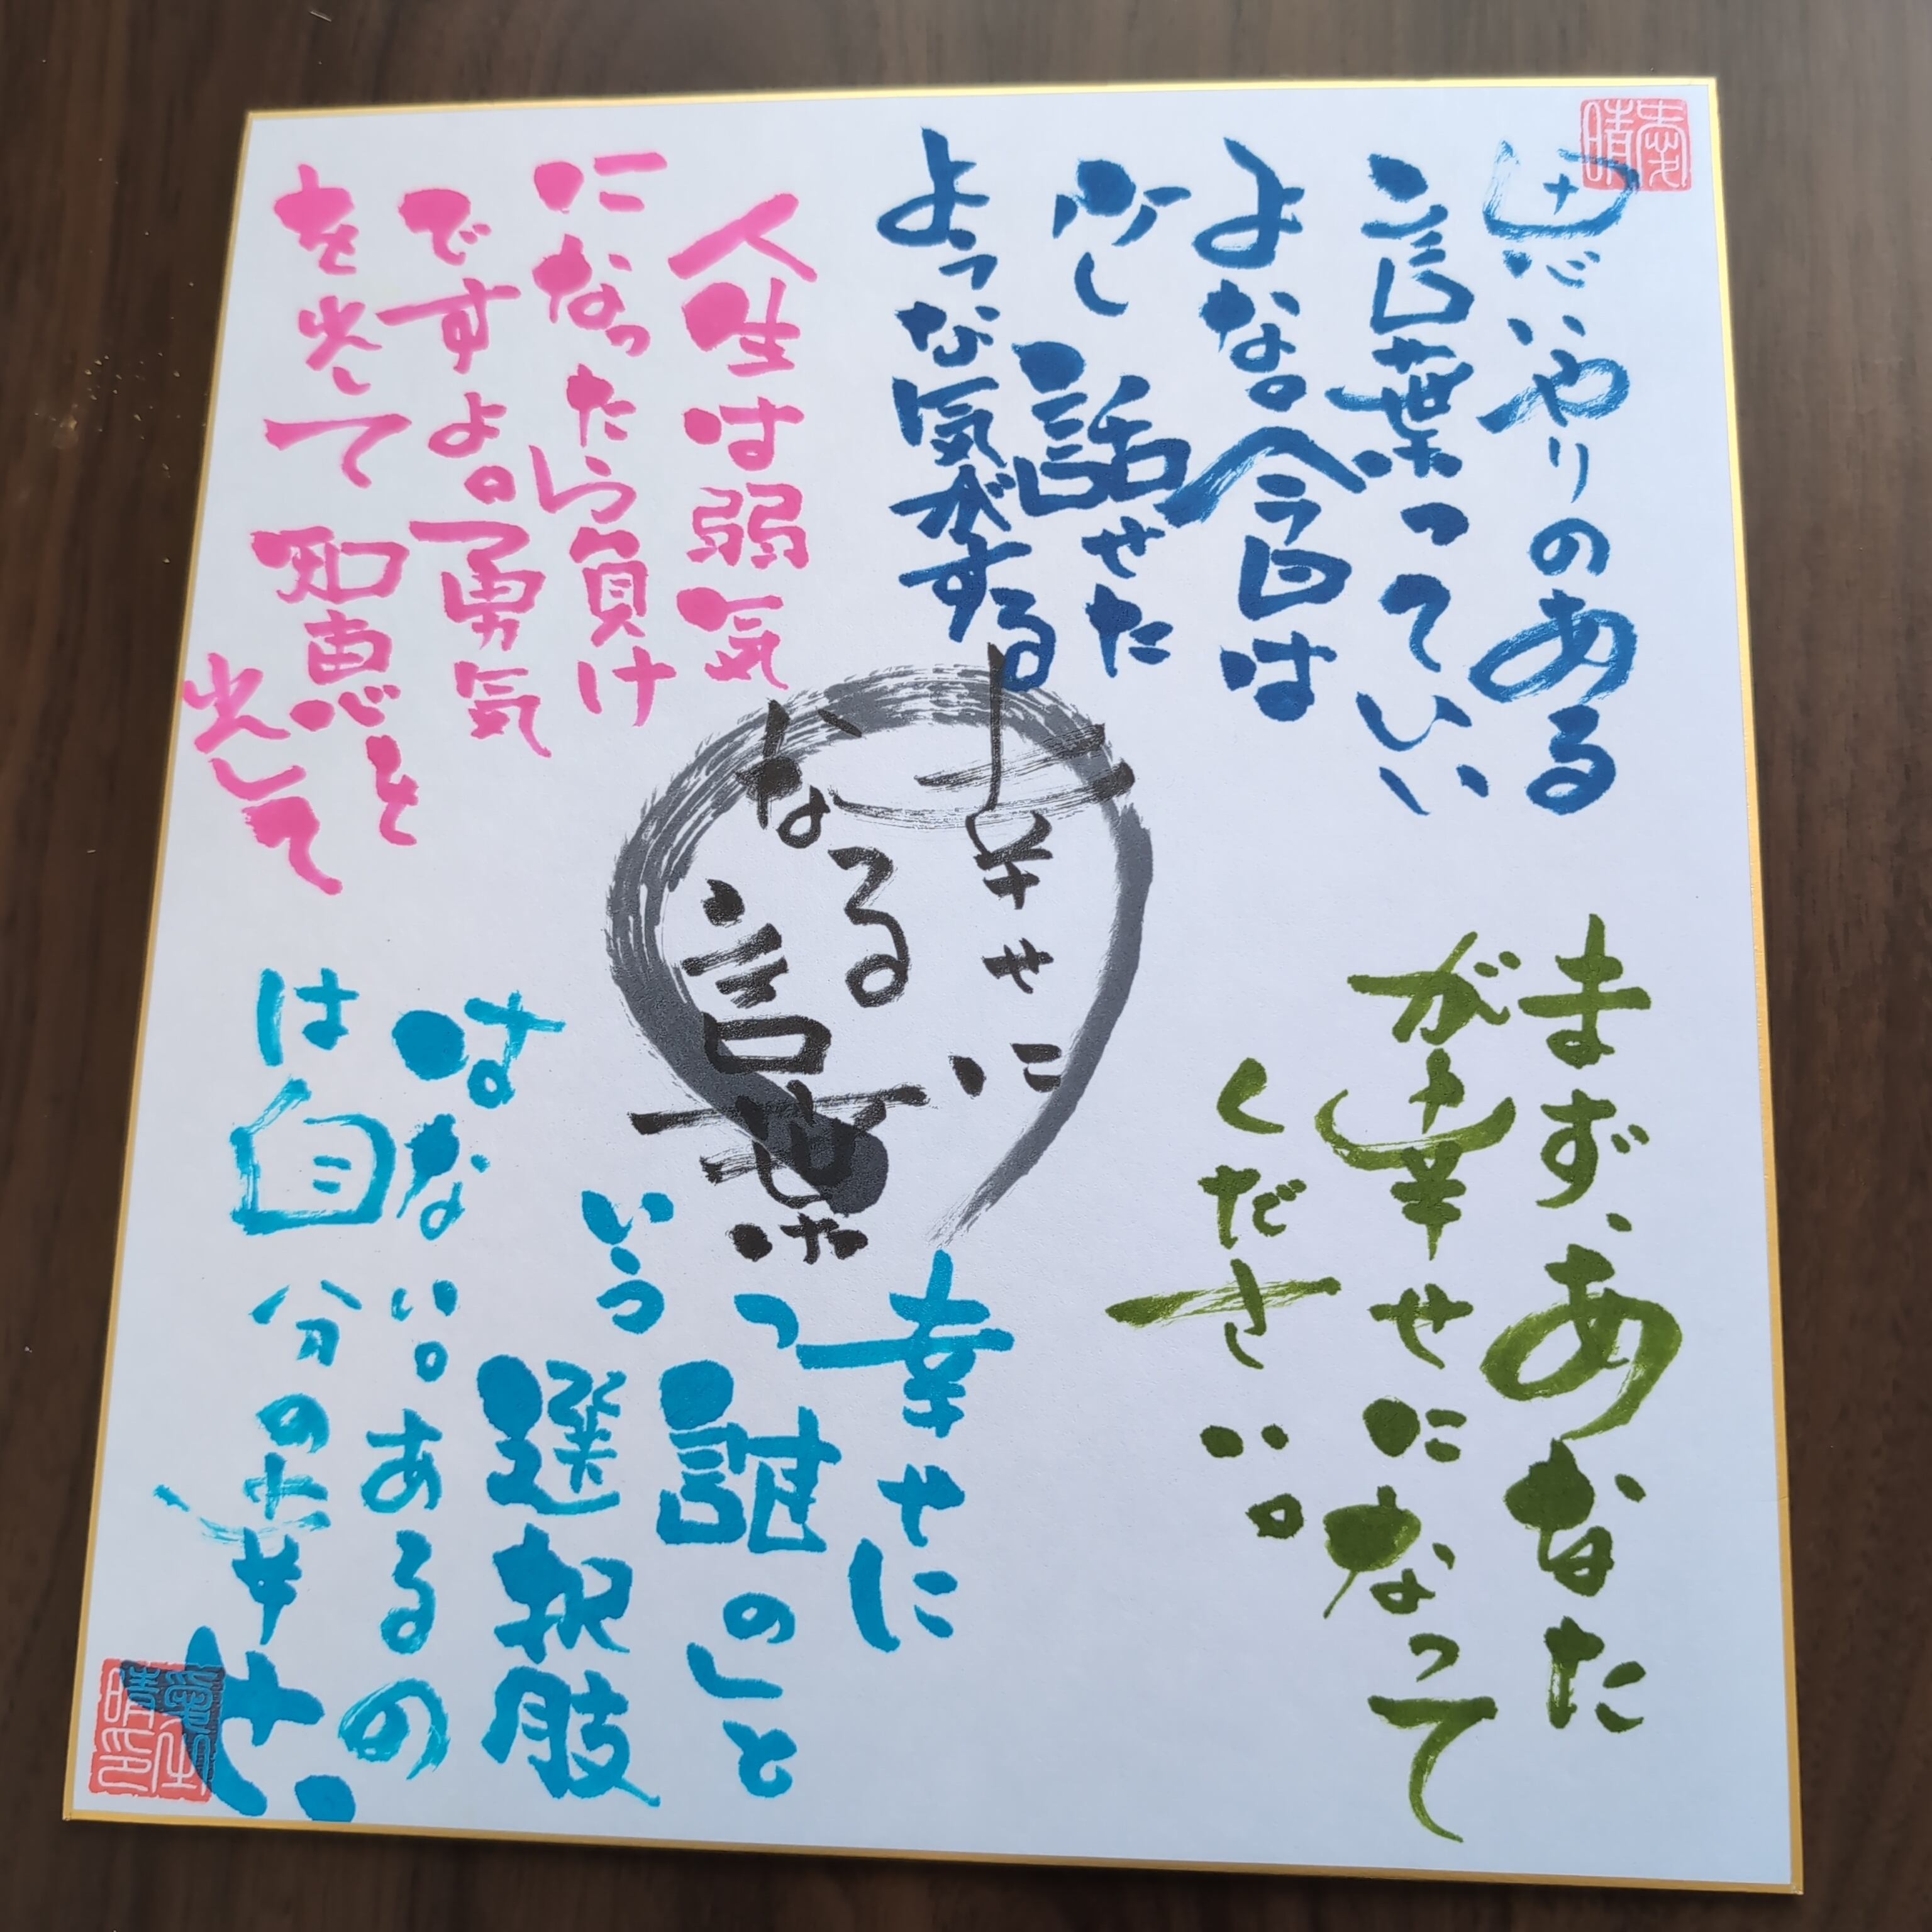 思いやりのある
言葉っていい
よな。今日は
少し話せた
ような気がする
人生は弱気
になったら負け
ですよ。勇気
を出して知恵を
出して
幸せに
なる
言葉
まず、あなた
が幸せになって
ください。
幸せに
のこと
いう選択肢
はない。あるの
は自分の幸せ